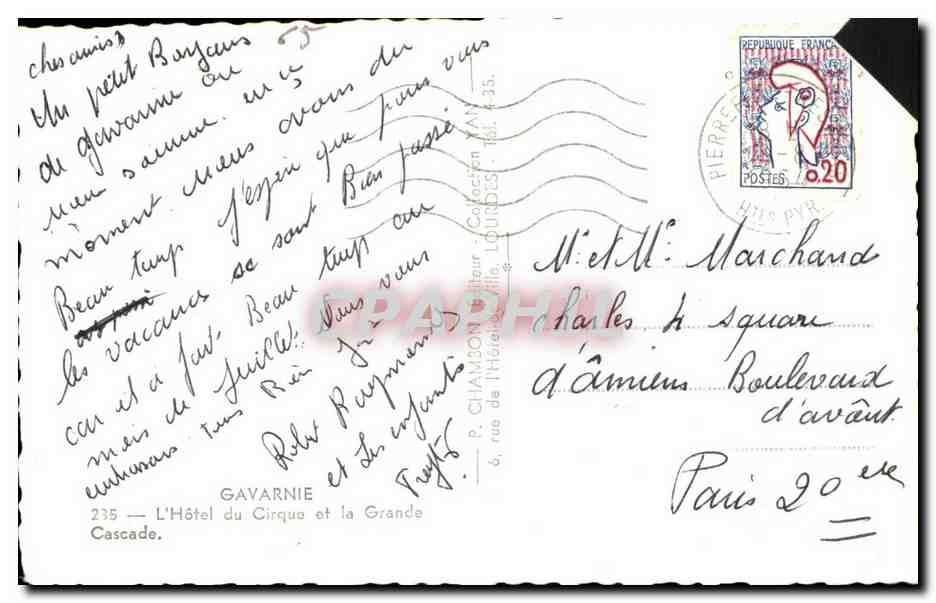 ches amis
65
Un petit Bonjour
de gavarnie ou
nous somme en ce
moment nous avons du
Beau temp j'espere que pour vous
les vacances se sont Bien passé
car il a fait Beau temp au
mois de Juillet. Nous vous
embrasons Tous Bien
Robert Raymonde
et Les enfants
GAVARNIE
235 — L'Hôtel du Cirque et la Grande
Cascade.
— P. CHAMBON, Editeur - Collection YAN —
6, rue de l'Hôtel-de-Ville, LOURDES - Tél. 4-35.
CPAPHIL
REPUBLIQUE FRANCAISE
POSTES
0.20
PIERREF
HTES PYR.
Mr et Me Marchand
charles 4 square
d'Amiens Boulevard
d'avout
Paris 20 eme